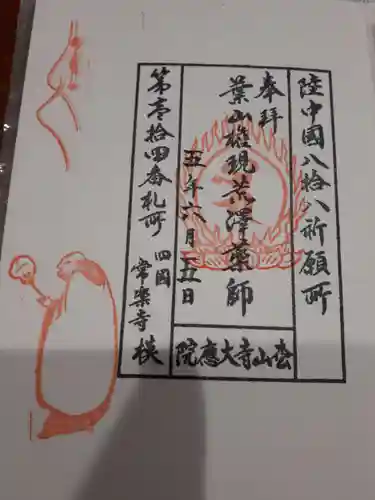 陸中國八拾八祈願所
奉拝
葉山権現荒澤薬師
五年六月五日
第壱拾四番札所 四国 常楽寺 模
山寺大應院